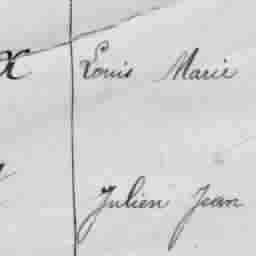 Louis Marie
Julien Jean